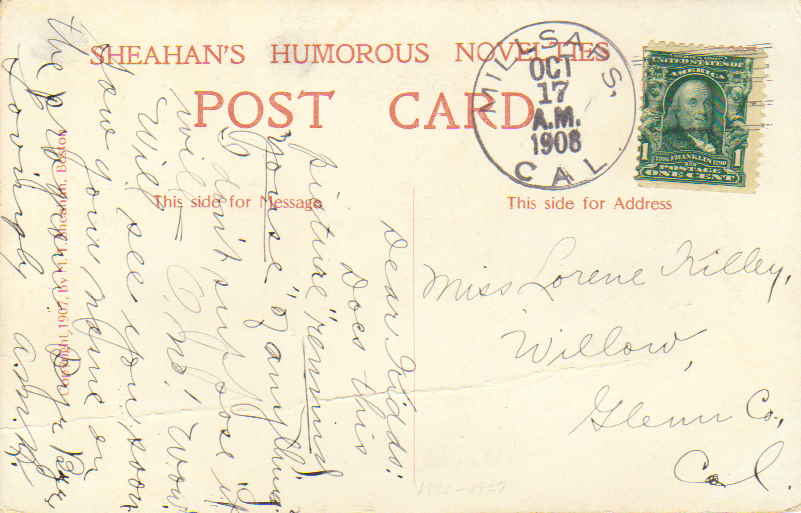 SHEAHAN'S HUMOROUS NOVELTIES
POST CARD
This side for Message
This side for Address
MILLSAPS, CAL.
OCT
17
A.M.
1908
UNITED STATES OF
AMERICA
FRANKLIN
POSTAGE
1 ONE CENT 1
Miss Lorene Killey,
Willow,
Glenn Co.,
Cal.
Dear Kids:
Does this
picture "remind
youse" of anything.
I don't suppose it
will - Oh no! Wow
Will see you soon
Saw your name on
the program
Lovingly A.M.B.
Copyright, 1907, by M.T. Sheahan, Boston